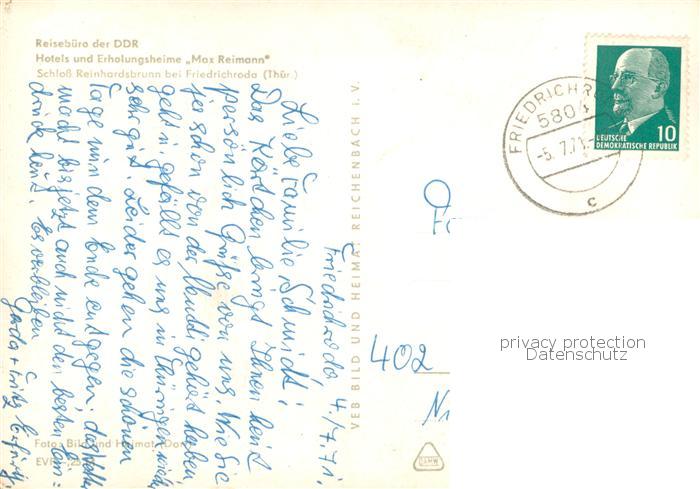 Reisebüro der DDR
Hotels und Erholungsheime „Max Reimann"
Schloß Reinhardsbrunn bei Friedrichroda (Thür.)
Friedrichroda 4./7.71.
Liebe Familie Schmidt!
Das Kärtchen bringt Ihnen heut
persönlich Grüße von uns. Wie Sie
ja schon von der Mutti gehört haben
geht u. gefällt es uns in Thüringen wieder
sehr gut. Leider gehen die schönen
Tage nun dem Ende entgegen. das Wetter
macht bis jetzt auch nicht den besten Ein=
druck heut. Es verbleiben
Gerda + Fritz
Foto: Bild und Heimat
VEB BILD UND HEIMAT REICHENBACH I. V.
FRIEDRICHRO
5804
-5. 7.71
c
10
DEUTSCHE
DEMOKRATISCHE REPUBLIK
402
privacy protection
Datenschutz